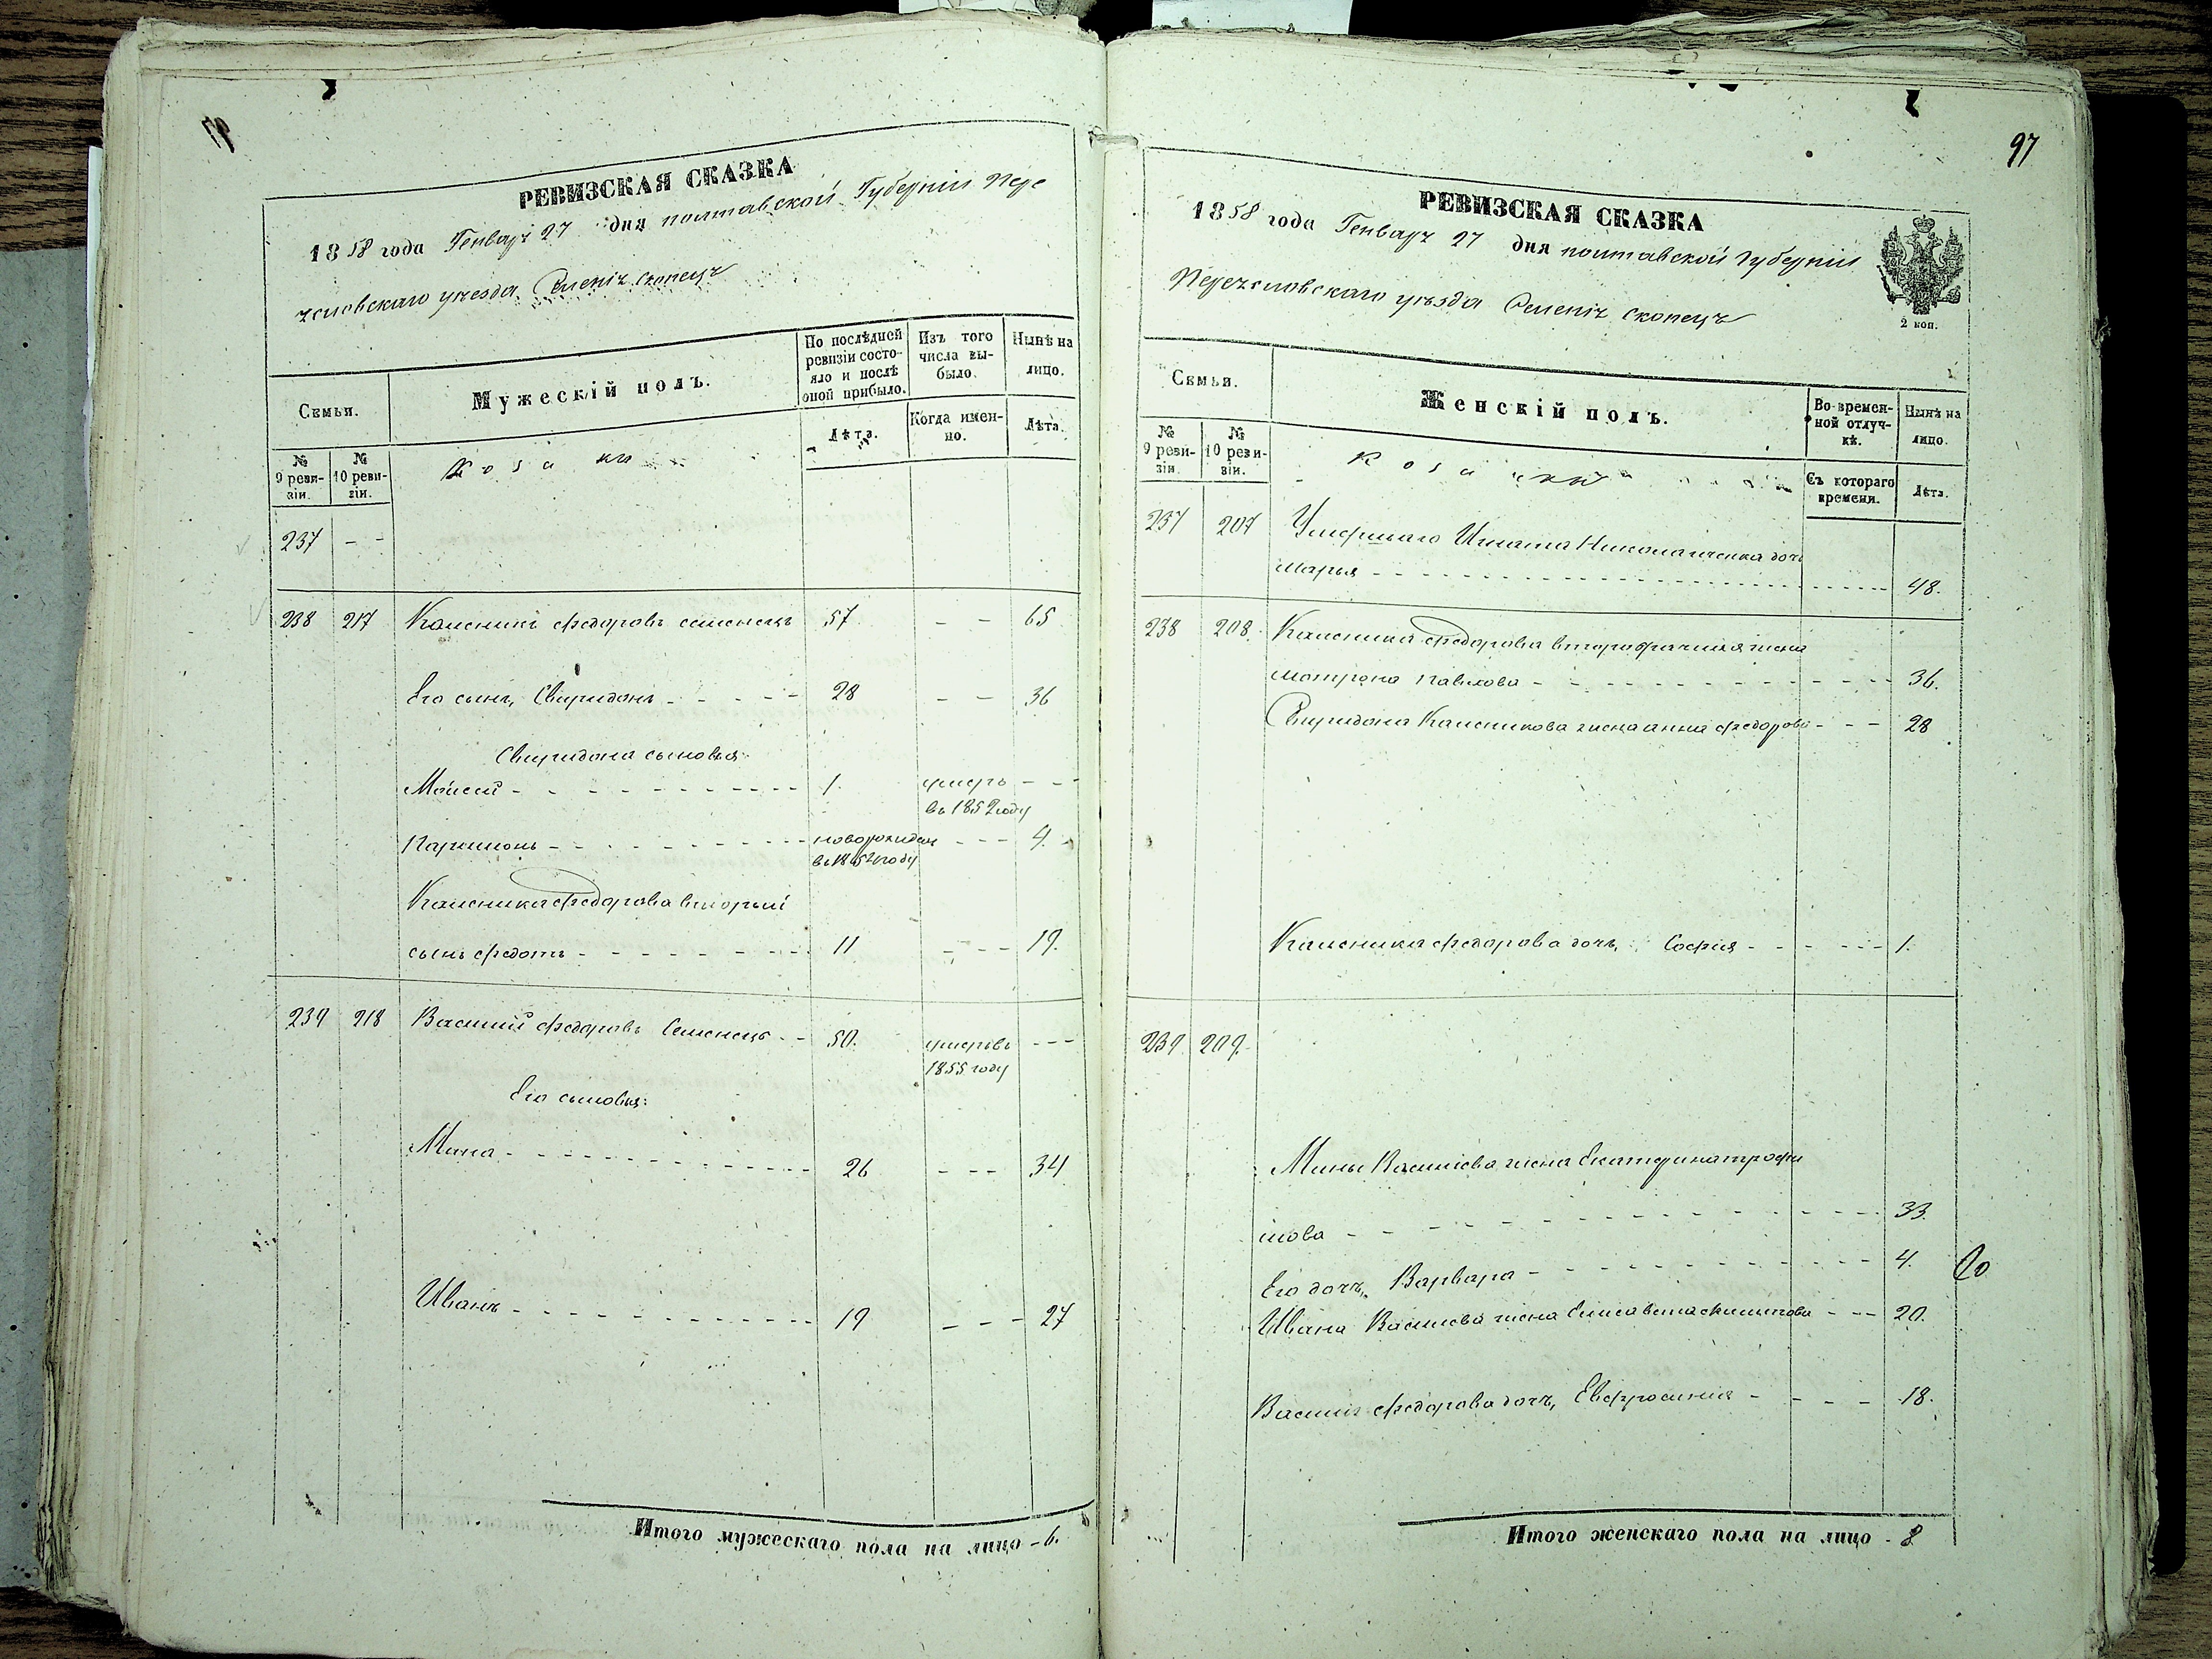 97
РЕВИЗСКАЯ СКАЗКА
1858 года Генваря 27 дня полтавской Губерніи Пере
яславскаго уезда Селенія Скопецъ
Семьи.
Мужескій полъ.
По послѣдней ревизіи состояло и послѣ оной прибыло.
Изъ того числа выбыло.
Нынѣ на лицо.
№ 9 ревизіи.
№ 10 ревизіи.
Козаки
Лѣта.
Когда именно.
Лѣта.
237 - -
238 217 Каленикъ Федоровъ Семенецъ 57 - - 65
Его сынъ, Свиридонъ - - - - 28 - - 36
Свиридона сыновья
Моисей - - - - 1. умеръ - - -
въ 1852 году
Пармионъ - - - - новорожден - - - 4.
въ 1854 году
Каленика Федорова вторый
сынъ Федотъ - - - - 11 - - - 19.
239 218 Василий Федоровъ Семенецъ - - 50. умеръ въ - - -
1855 году
Его сыновья:
Мина - - - - 26 - - - 34
Иванъ - - - - 19 - - - 27
Итого мужескаго пола на лицо - 6.
РЕВИЗСКАЯ СКАЗКА
1858 года Генваря 27 дня полтавской Губерніи
Переяславскаго уѣзда Селенія Скопецъ
2 коп.
Семьи.
Женскій полъ.
Во временной отлучкѣ.
Нынѣ на лицо.
№ 9 ревизіи.
№ 10 ревизіи.
Козачки
Съ котораго времени.
Лѣта.
237 207 Умершаго Игната Николайченка дочь
Марья - - - - 48.
238 208. Каленика Федорова второбрачная жена
Матрона Павлова - - - - 36.
Свиридона Каленикова жена анна Федорова - - - 28
Каленика Федорова дочь, София - - - - 1.
239. 209.
Мины Васильева жена Екатерина трофи
мова - - - - 33.
Его дочь, Варвара - - - - 4.
Ивана Васильева жена Елисавета - - - 20.
Василия Федорова дочь, Евфросиния - - - - 18.
Итого женскаго пола на лицо - 8